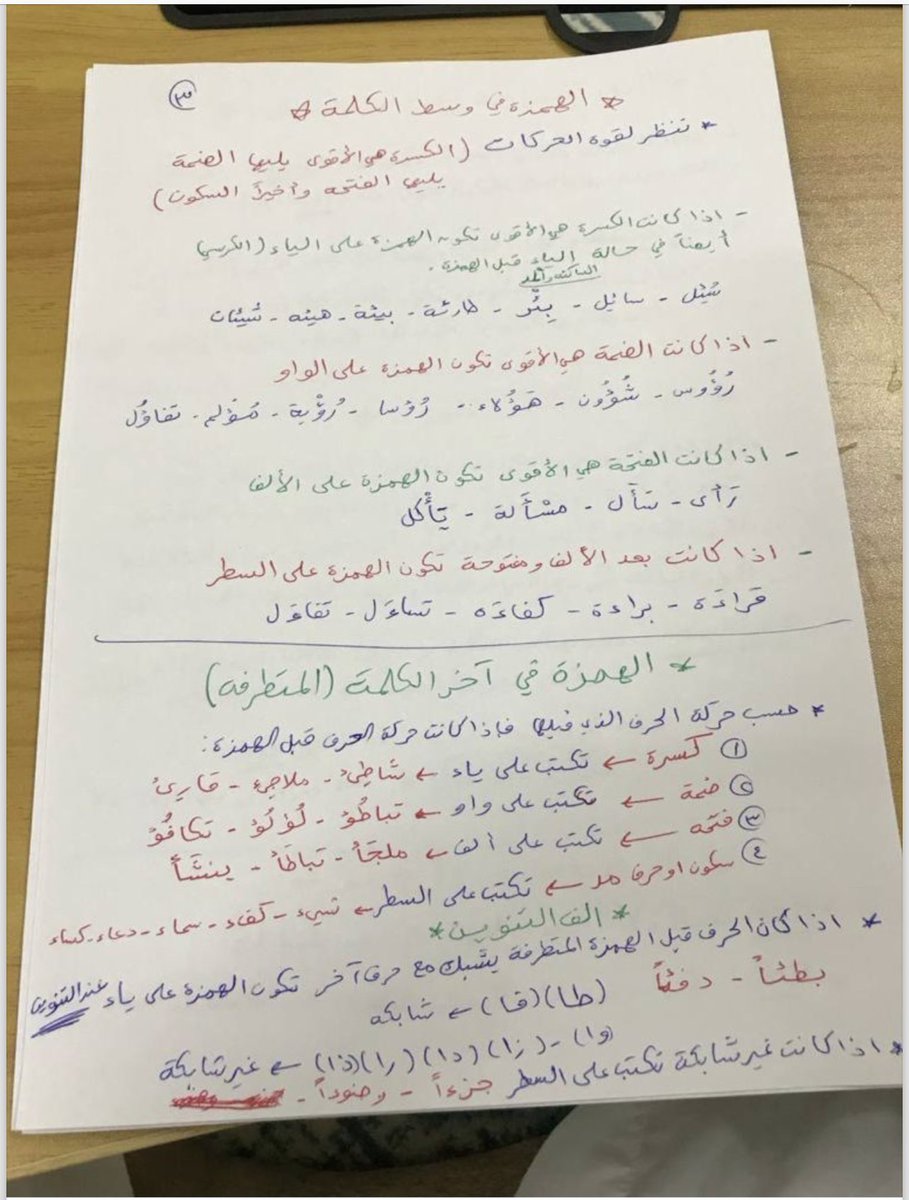 ٣
* الهمزة في وسط الكلمة *
* تنظر لقوة الحركات (الكسرة هي الأقوى يليها الضمة
يليها الفتحه وأخيراً السكون)
- اذا كانت الكسرة هي الأقوى تكون الهمزة على الياء (الكرسي)
أيضاً في حالة الياء قبل الهمزة.
الساكنة
سُئِل - سائِل - بِئْر - طارئة - بيئة - هيئه - شيئات
- اذا كانت الضمة هي الأقوى تكون الهمزة على الواو
رُؤُوس - شُؤُون - هَؤُلاء - رُؤسا - رُؤْية - مُؤلم - تفاؤُل
- اذا كانت الفتحة هي الأقوى تكون الهمزة على الألف
رَأى - سَأَل - مسْأَلة - يَأْكل
- اذا كانت بعد الألف ومفتوحة تكون الهمزة على السطر
قراءَة - براءة - كفاءَه - تساءَل - تفاءَل
* الهمزة في آخر الكلمة (المتطرفه)
* حسب حركة الحرف الذي قبلها فإذا كانت حركة الحرف قبل الهمزة:
١ كسرة ← تكتب على ياء ← شاطِئ - ملاجِئ - قارِئ
٢ ضمة ← تكتب على واو ← تباطُؤ - لُؤلُؤ - تكافُؤ
٣ فتحه ← تكتب على ألف ← ملجَأ - تباطَأ - ينشَأ
٤ سكون او حرف مد ← تكتب على السطر ← شيء - كفاء - سماء - دعاء - كساء
* الف التنوين *
* اذا كان الحرف قبل الهمزة المتطرفة يشبك مع حرف آخر تكون الهمزة على ياء عند التنوين
بطئاً - دفئاً
(طا) (قا) ← شابكه
(وا) - (زا) (دا) (را) (ذا) ← غير شابكة
* اذا كانت غير شابكة تكتب على السطر جزءاً - وضوءاً -